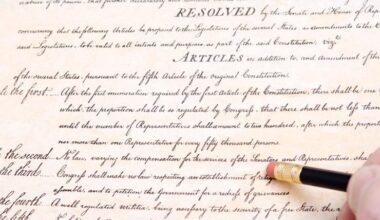 RESOLVED by the Senate and House of Repre
concurring that the following Articles be proposed to the Legislatures of the several States, as amendments to the C
said Legislatures, to be valid to all intents and purposes as part of the said Constitution, viz.
ARTICLES in addition to, and amendment of the
of the several States, pursuant to the fifth Article of the original Constitution.
the first. After the first enumeration required by the first Article of the Constitution, there shall be one
which, the proportion shall be so regulated by Congress, that there shall be not less than
until the number of Representatives shall amount to two hundred, after which, the proportion
nor more than one Representative for every fifty thousand persons
the second No law, varying the compensation for the services of the Senators and Representatives, shall
the third. Congress shall make no law respecting an establishment of relig
semble, and to petition the Government for a redress of grievances
fourth. A well regulated militia, being necessary to the security of a free State, the
fifth